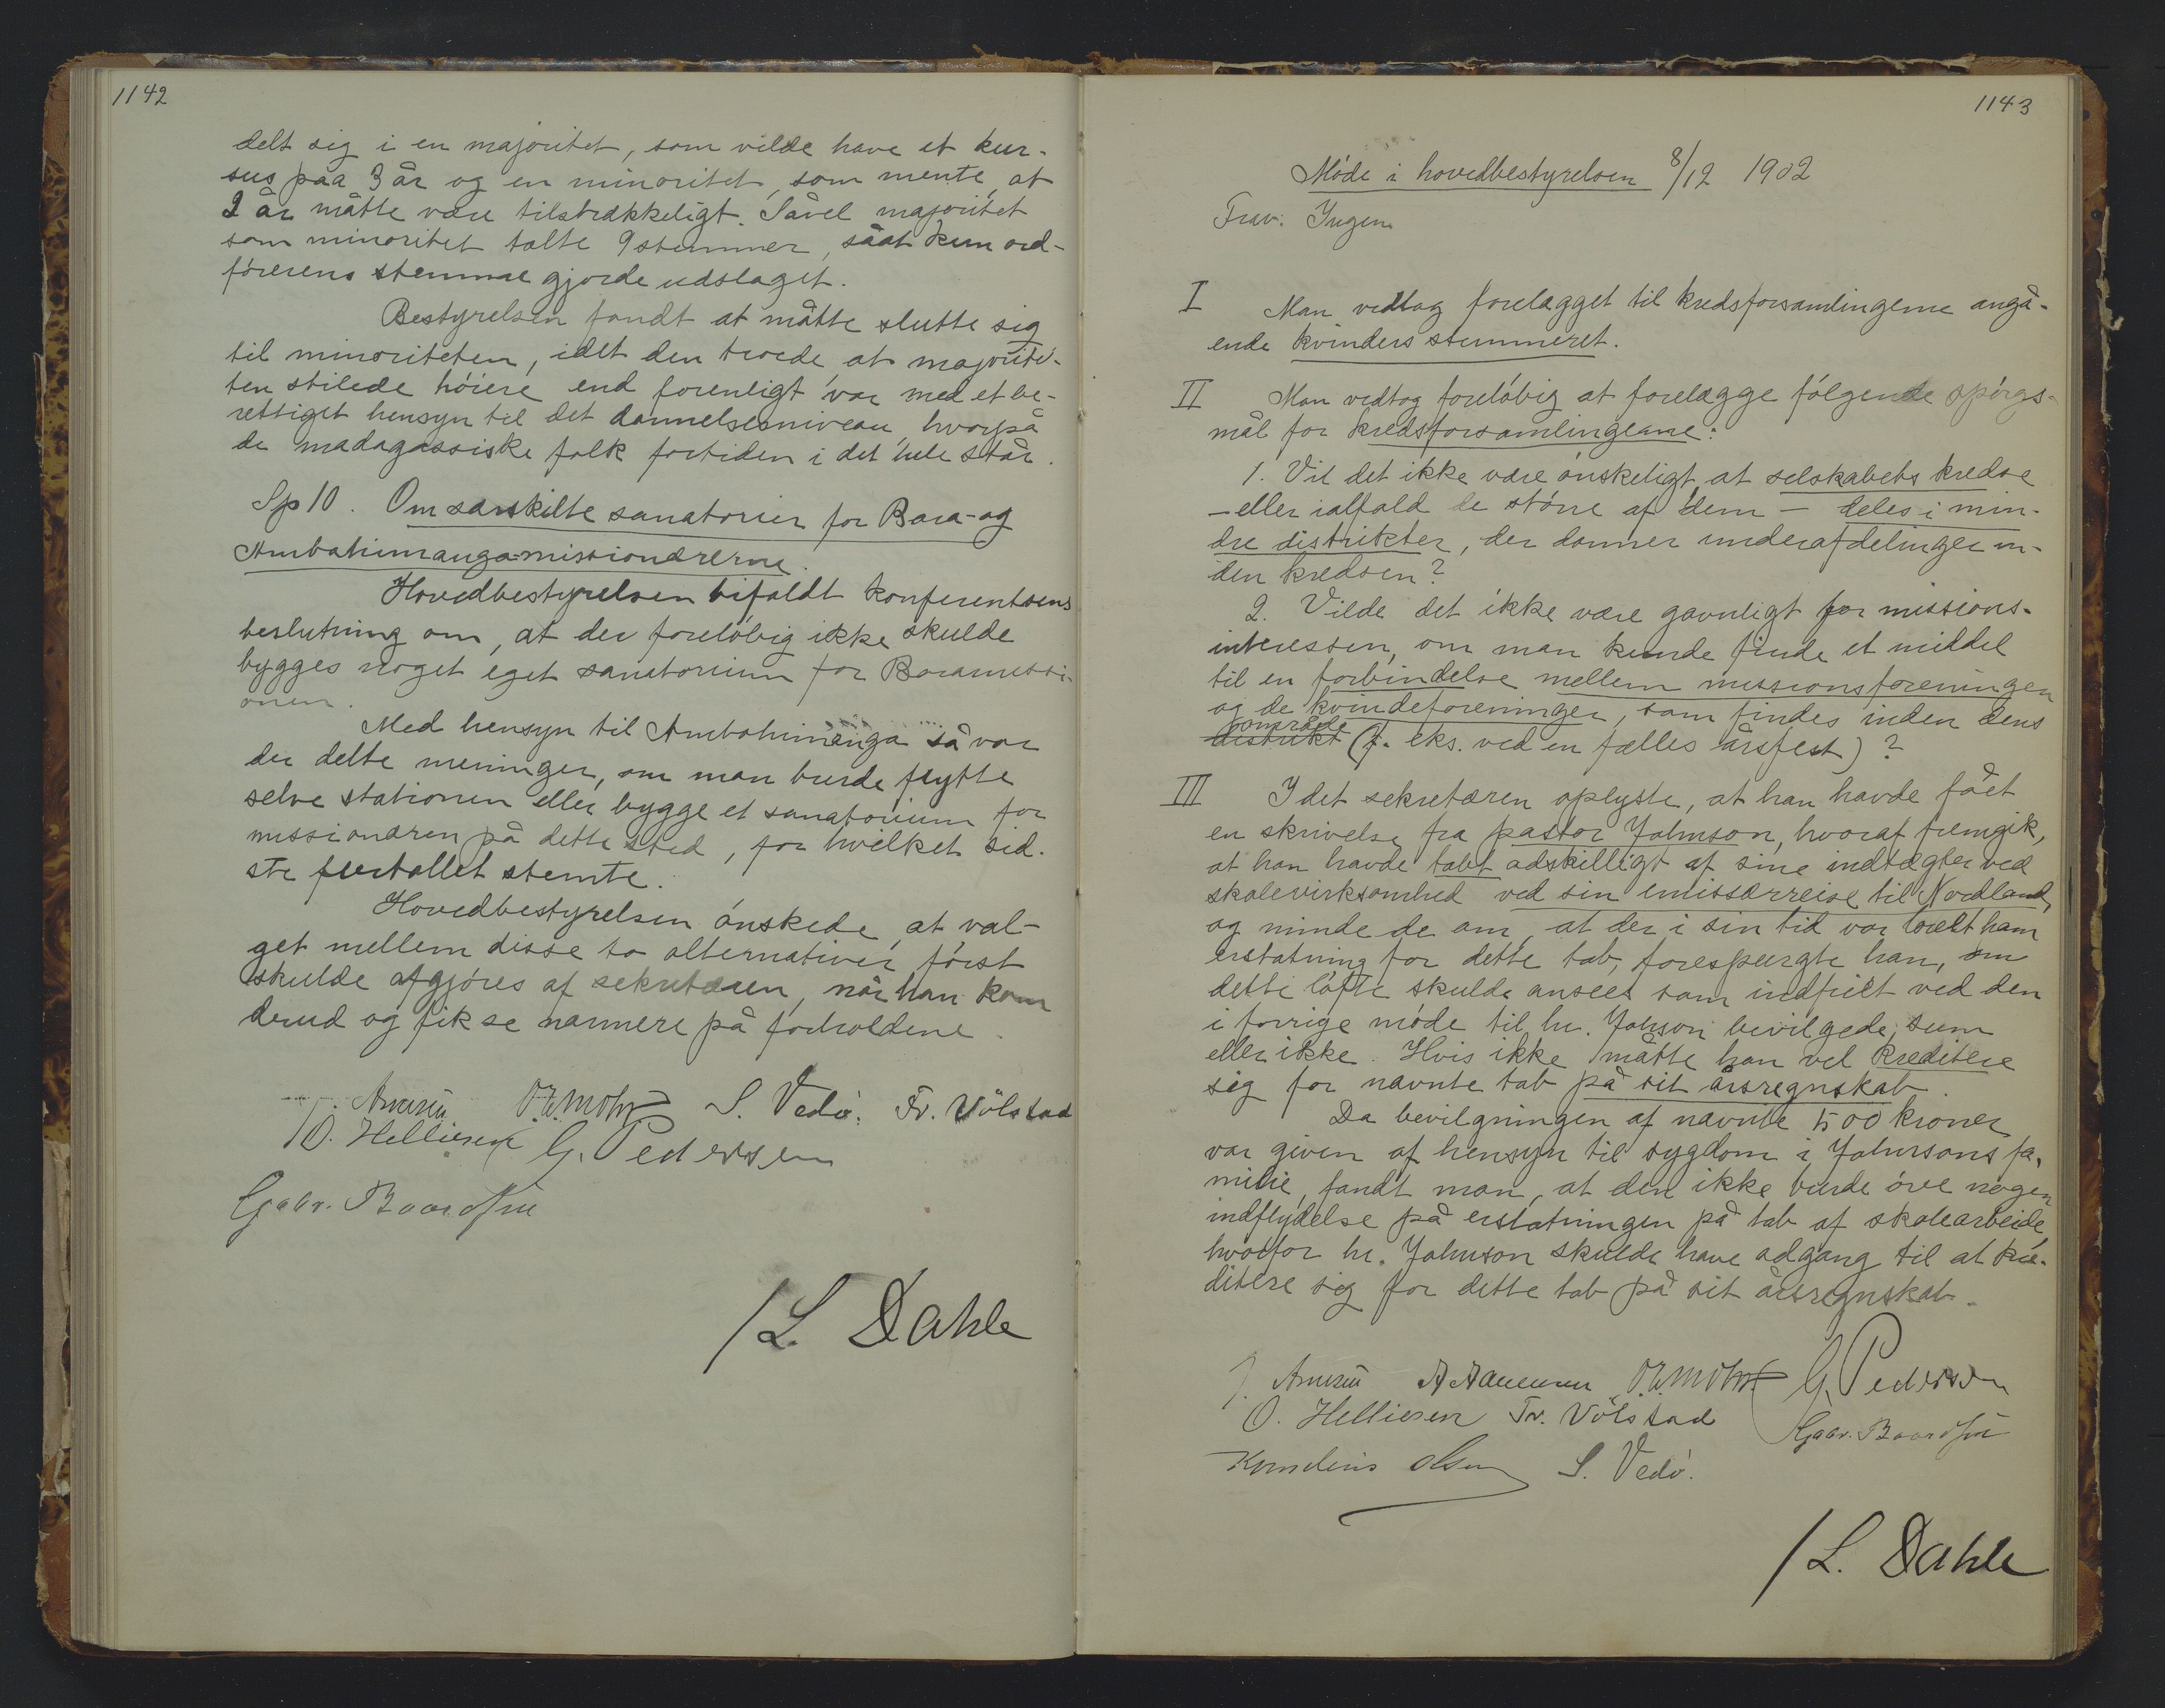 1142
delt sig i en majoritet, som vilde have et kur-
sus paa 3 år og en minoritet, som mente, at
2 år måtte være tilstrækkeligt. Såvel majoritet
som minoritet talte 9 stemmer, såat kun ord-
førerens stemme gjorde udslaget.
Bestyrelsen fandt at måtte slutte sig
til minoriteten, idet den troede, at majorite-
ten stilede høiere end forenligt var med et be-
rettiget hensyn til det dannelsesniveau, hvorpå
de madagassiske folk fortiden i det hele står.
Sp 10. Om særskilte sanatorier for Bara- og
Ambohimanga-missionærerne.
Hovedbestyrelsen bifaldt konferentsens
beslutning om, at der foreløbig ikke skulde
bygges noget eget sanatorium for Baramissi-
onen.
Med hensyn til Ambohimanga så var
der delte meninger, om man burde flytte
selve stationen eller bygge et sanatorium for
missionæren på dette sted, for hvilket sid-
ste flertallet stemte.
Hovedbestyrelsen ønskede, at val-
get mellem disse to alternativer først
skulde afgjøres af sekretæren, når han kom
derud og fik se nærmere på forholdene.
S. Vedø. Fr. Völstad
O. Helliesen G. Pedersen
Gabr. Baardsen
/L. Dahle
1143
Møde i hovedbestyrelsen 8/12 1902
Frav: Ingen
I Man vedtog forelægget til kredsforsamlingerne angå-
ende kvinders stemmeret.
II Man vedtog foreløbig at forelægge følgende spørgs-
mål for kredsforsamlingerne:
1. Vil det ikke være ønskeligt, at selskabets kredse
- eller ialfald de större af dem - deles i min-
dre distrikter, der danner underafdelinger in-
den kredsen?
2. Vilde det ikke være gavnligt for missions-
interessen, om man kunde finde et middel
til en forbindelse mellem missionsforeningen
og de kvindeforeninger, som findes inden dens
område
distrikt (f. eks. ved en fælles årsfest)?
III Idet sekretæren oplyste, at han havde fået
en skrivelse fra pastor Johnson, hvoraf fremgik,
at han havde tabt adskilligt af sine indtægter ved
skolevirksomhed ved sin emissærreise til Nordland,
og minde de om, at der i sin tid var lovet ham
erstatning for dette tab, forespurgte han, om
dette løfte skulde ansees som indfriet ved den
i forrige møde til hr. Johson bevilgede sum
eller ikke. Hvis ikke måtte han vel kreditere
sig for nævnte tab på sit årsregnskab.
Da bevilgningen af nævnte 500 kroner
var given af hensyn til sygdom i Johnsons fa-
milie, fandt man, at den ikke burde øve nogen
indflydelse på erstatningen på tab af skolearbeide,
hvorfor hr. Johnson skulde have adgang til at kre-
ditere sig for dette tab på sit årsregnskab.
G. Pedersen
O. Helliesen Fr. Völstad Gabr. Baardsen
Kornelius Olsen S. Vedø.
/L. Dahle